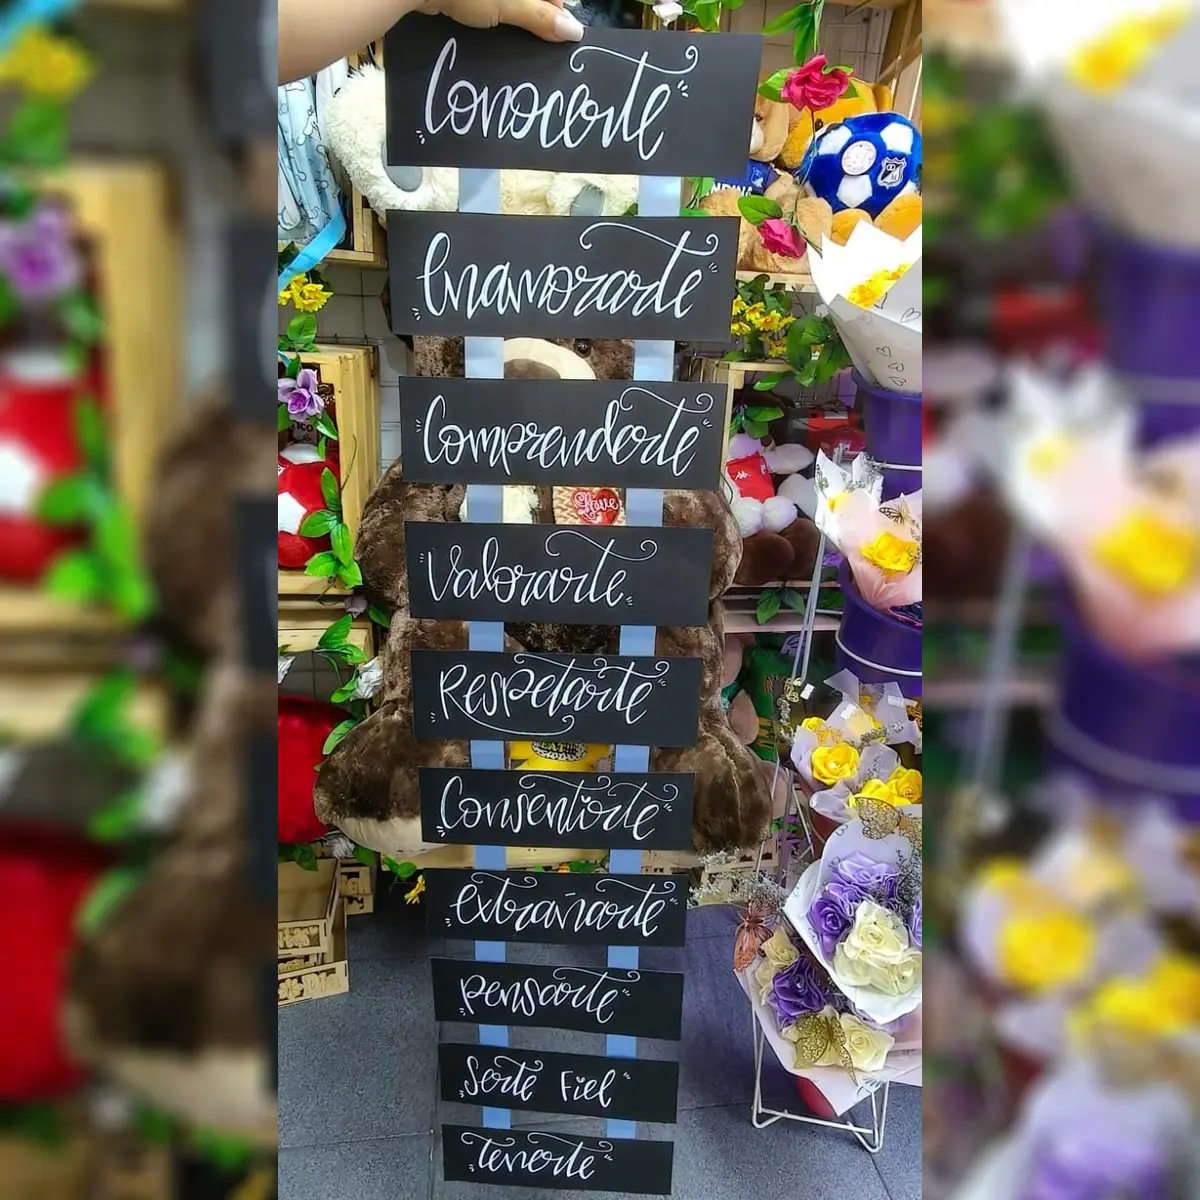 "Conocerte"
"Enamorarte"
"Comprenderte"
"Valorarte"
"Respetarte"
"Consentirte"
"Extrañarte"
"Pensarte"
"Serte Fiel"
"Tenerte"
Love